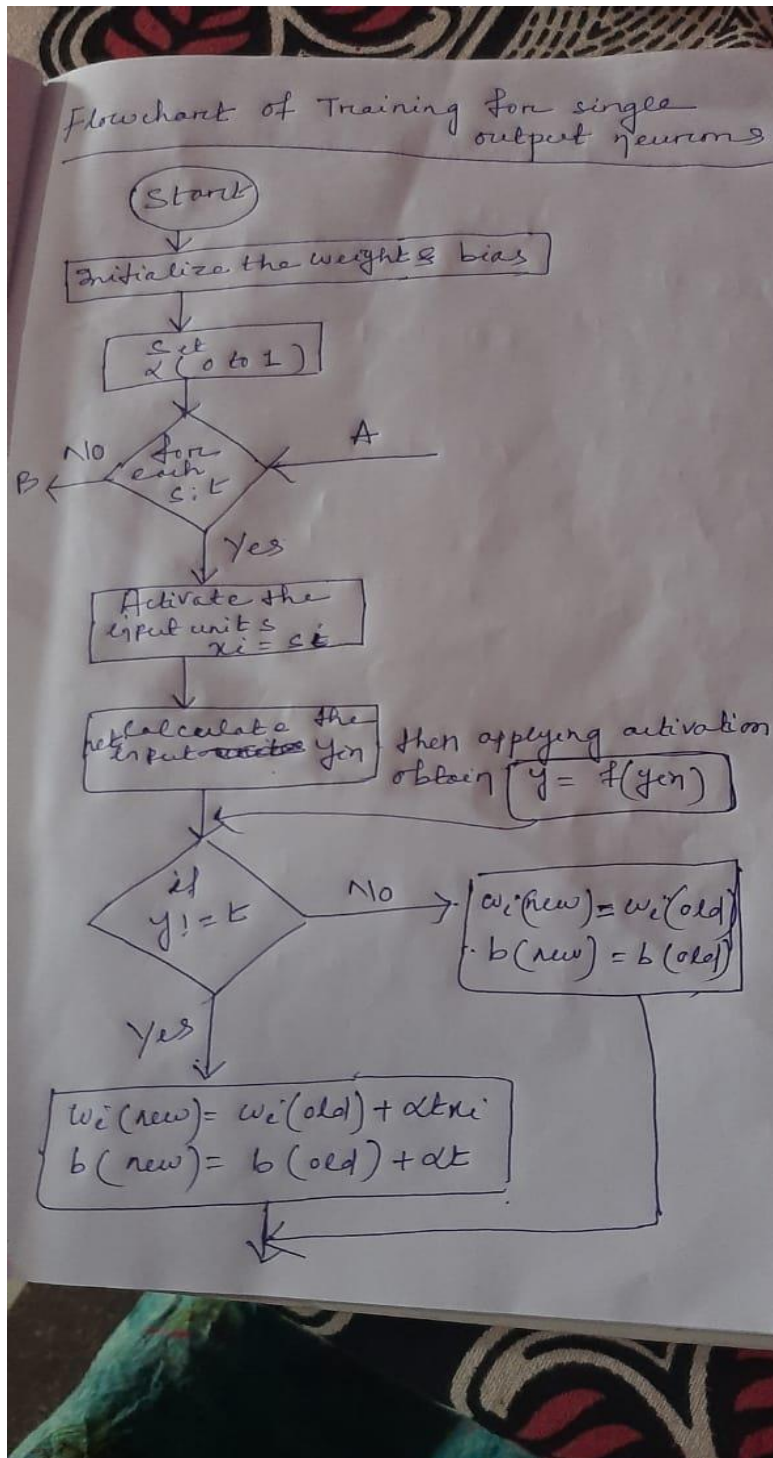 Flowchart of Training for single
output neurons
Start
Initialize the weight & bias
Set
α (0 to 1)
A
No
for
each
s:t
B
Yes
Activate the
input units
xi = si
Calculate the
net input yin
then applying activation
obtain y = f(yin)
if
y! = t
No
wi(new) = wi(old)
b(new) = b(old)
Yes
wi(new) = wi(old) + αtxi
b(new) = b(old) + αt